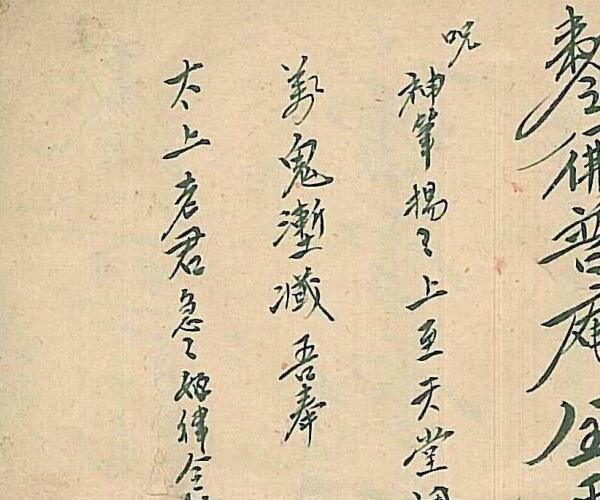 佛普庵
呪
神筆揚々上至天堂
萬鬼滅吾奉
太上老君急々如律令